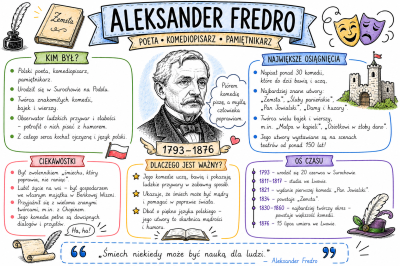 ALEKSANDER FREDRO
POETA • KOMEDIOPISARZ • PAMIĘTNIKARZ
Zemsta
KIM BYŁ?
Polski poeta, komediopisarz,
pamiętnikarz.
Urodził się w Surochowie na Podolu.
Twórca znakomitych komedii,
bajek i wierszy.
Obserwator ludzkich przywar i słabości
– potrafił o nich pisać z humorem.
Z całego serca kochał ojczyznę i język polski
Piórem
komedię
piszę, a myślą
człowieka
poprawiam.
1793 – 1876
NAJWIĘKSZE OSIĄGNIĘCIA
Napisał ponad 30 komedii,
które do dziś bawią i uczą.
Najbardziej znane utwory:
„Zemsta", „Śluby panieńskie",
„Pan Jowialski", „Damy i huzary"
Twórca wielu bajek i wierszy,
m.in. „Małpa w kąpieli", „Osiołkowi w żłoby dano"
Jego utwory wystawiane są na scenach
teatrów od ponad 150 lat!
CIEKAWOSTKI
Był zwolennikiem „śmiechu, który
poprawia, nie rani
Lubił życie na wsi – był gospodarzem
we własnym majątku w Beńkowej Wiszni.
Przyjaźnił się z wieloma znanymi
twórcami, m.in. z Chopinem.
Jego komedie pełne są dowcipnych
dialogów i przysłów.
Ha, ha!
DLACZEGO JEST WAŻNY?
Jego komedie uczą, bawią i pokazują
ludzkie przywary w zabawny sposób
Ukazuje, że śmiech może być mądry
i pomagać w poprawie świata
Dbał o piękno języka polskiego –
jego utwory to skarbnica mądrości
i humoru.
OŚ CZASU
1793 – urodził się 20 czerwca w Surochowie
1811–1817 – studia we Lwowie.
1821 – wydanie pierwszej komedii „Pan Jowialski".
1834 – powstaje „Zemsta"
1830–1860 – najbardziej twórczy okres –
powstaje większość komedii.
1876 – 15 lipca umiera we Lwowie.
„Śmiech niekiedy może być nauką dla ludzi."
Aleksander Fredro